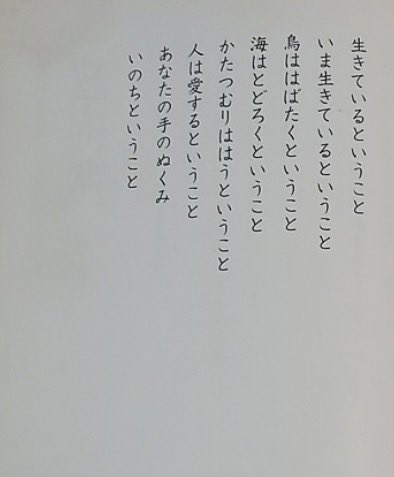 生きているということ
いま生きているということ
鳥ははばたくということ
海はとどろくということ
かたつむりははうということ
人は愛するということ
あなたの手のぬくみ
いのちということ